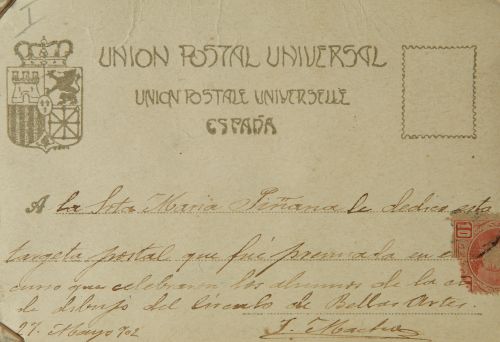 I
UNION POSTAL UNIVERSAL
UNION POSTALE UNIVERSELLE
ESPAÑA
A la Srta Maria Piñana le dedico esta
targeta postal que fué premiada en el
curso que celebraron los alumnos de la
de dibujo del Circulo de Bellas Artes.
27. Marzo 902
10